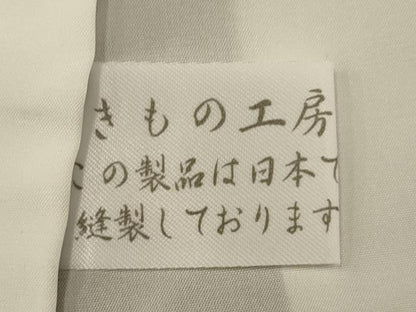 きもの工房
この製品は日本で
縫製しております